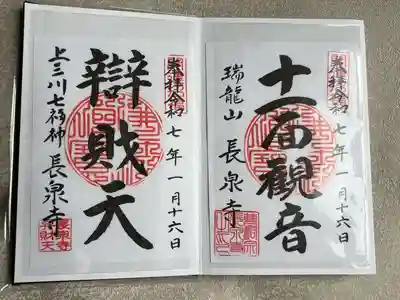 奉拝令和 七年一月十六日
十一面觀音
瑞龍山 長泉寺
奉拝令和 七年一月十六日
辯財天
上三川七福神 長泉寺